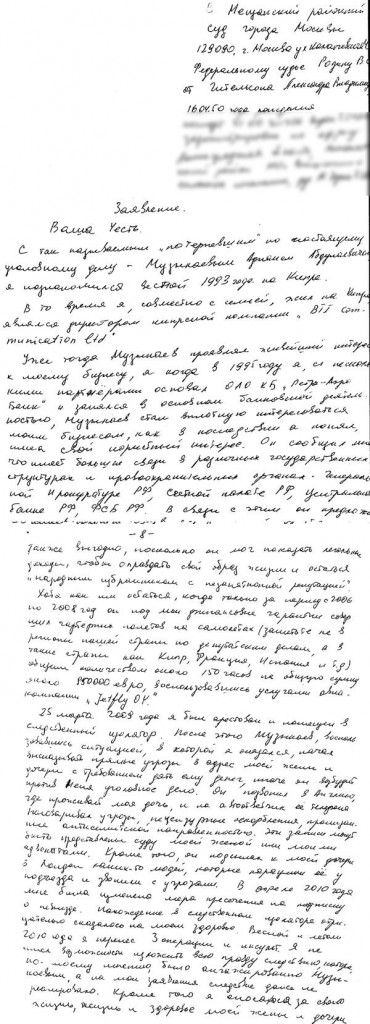 В Мещанский районный
суд города Москвы
129090, г. Москва ул. Каланчевская
Федеральному судье
от Гительсона Александра Владимир
16.04.50 года рождения
Заявление.
Ваша Честь.
С так называемым „потерпевшим" по настоящему
уголовному делу - Музыкаевым
я познакомился весной 1993 года на Кипре.
В то время я, совместно с семьей, жил на Кипре
являлся директором кипрской компании „BTT com-
munication ltd"
Уже тогда Музыкаев проявлял живейший интерес
к моему бизнесу, а когда в 1995 году я, с несколь-
кими партнерами основал ОАО КБ „Петро-Аэро-
Банк" и занялся в основном банковской деятель-
ностью, Музыкаев стал вплотную интересоваться
моим бизнесом, как в последствии я понял,
имея свой корыстный интерес. Он сообщил мне
что имеет большие связи в различных государственных
структурах и правоохранительных органах - Генераль-
ной прокуратуре РФ, Счетной палате РФ, Центральном
банке РФ, ФСБ РФ. В связи с этим он предложи
-8-
также выгодно, поскольку он мог показать легальные
доходы, чтобы оправдать свой образ жизни и остаться
„народным избранником с незапятнанной репутацией"
Хотя как им остаться, когда только за период с 2006
по 2008 год он под мои финансовые гарантии совер
шил чартерных полетов на самолетах (заметьте не в
регионы нашей страны по депутатским делам, а в
такие страны как Кипр, Франция, Испания и т.д)
общим количеством около 150 часов на общую сумму
около 950000 евро, воспользовавшись услугами авиа-
компании „Jetfly OY."
25 марта 2009 года я был арестован и помещен в
следственный изолятор. После этого Музыкаев, восполь
зовавшись ситуацией, в которой я оказался, начал
высказывать прямые угрозы в адрес моей жены и
дочери с требованием дать ему денег, иначе он возбудит
против меня уголовное дело. Он позвонил в Англию,
где проживает моя дочь, и на автоответчик её телефона
наговаривал угрозы, нецензурные оскорбления,
антисемитской направленности. Эти записи могут
быть представлены суду моей женой или моими
адвокатами. Кроме того, он подсылал к моей дочери
в Лондон каких-то людей, которые караулили её у
подъезда и звонили с угрозами. В апреле 2010 года
мне была изменена мера пресечения на подписку
о невыезде. Нахождение в следственном изоляторе отри-
цательно сказалось на моем здоровье. Весной и летом
2010 года я перенес 3 операции и инсульт. Я не
имел возможности изложить всю правду следствию, которое,
по-моему мнению, было ангажировано Музы-
каевым, а на мои заявления следствие даже не
реагировало. Кроме того я опасаюсь за свою
жизнь, жизнь и здоровье моей жены и дочери